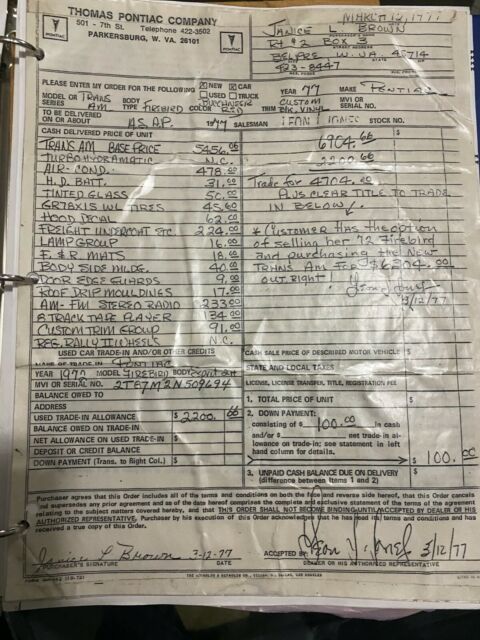 THOMAS PONTIAC COMPANY
501 - 7th St. Telephone 422-3502
PARKERSBURG, W. VA. 26101
PONTIAC
PONTIAC
MARCH 12, 1977
JANICE BROWN
Rt # 2 BOX 3
STREET ADDRESS
BELPRE W. VA. 45714
423-8447
PLEASE ENTER MY ORDER FOR THE FOLLOWING NEW CAR
USED TRUCK
YEAR 77 MAKE PONTIAC
MODEL OR SERIES TRANS AM BODY TYPE FIREBIRD COLOR BUCCANEER RED TRIM CUSTOM BLK. VINYL MVI OR SERIAL NO.
TO BE DELIVERED ON OR ABOUT A.S.A.P. 1977 SALESMAN LEON J. JONES STOCK NO.
CASH DELIVERED PRICE OF UNIT $
TRANS AM BASE PRICE 5456.00
TURBO HYDRAMATIC N.C.
AIR-COND. 478.00
H.D. BATT. 31.00
TINTED GLASS 50.00
GR78X15 WL TIRES 45.60
HOOD DECAL 62.00
FREIGHT UNDERCOAT ETC. 224.00
LAMP GROUP 16.00
F. & R. MATS 18.00
BODY SIDE MLDG. 40.00
DOOR EDGE GUARDS 9.00
ROOF DRIP MOULDINGS 17.00
AM-FM STEREO RADIO 233.00
8 TRACK TAPE PLAYER 134.00
CUSTOM TRIM GROUP 91.00
REG. RALLY II WHEELS N.C.
6904.00
2200.00
Trade for 4704.00
PLUS CLEAR TITLE TO TRADE
IN BELOW
* CUSTOMER HAS the option
of selling her 72 Firebird
and purchasing the New
TRANS AM FOR $6804.00
out right!
3/12/77
USED CAR TRADE-IN AND/OR OTHER CREDITS
MAKE OF TRADE-IN PONTIAC
YEAR 1972 MODEL FIREBIRD BODY
MVI OR SERIAL NO. 2T87M2N509694
BALANCE OWED TO
ADDRESS
USED TRADE-IN ALLOWANCE $ 2200.00
BALANCE OWED ON TRADE-IN
NET ALLOWANCE ON USED TRADE-IN $
DEPOSIT OR CREDIT BALANCE
DOWN PAYMENT (Trans. to Right Col.) $
CASH SALE PRICE OF DESCRIBED MOTOR VEHICLE $
STATE AND LOCAL TAXES
LICENSE, LICENSE TRANSFER, TITLE, REGISTRATION FEE
1. TOTAL PRICE OF UNIT $
2. DOWN PAYMENT:
consisting of $ 100.00 in cash
and/or $ net trade-in al-
lowance on trade-in; see statement in left
hand column for details. $ 100.00
3. UNPAID CASH BALANCE DUE ON DELIVERY
(difference between Items 1 and 2) $
Purchaser agrees that this Order includes all of the terms and conditions on both the face and reverse side hereof, that this Order cancels
and supersedes any prior agreement and as of the date hereof comprises the complete and exclusive statement of the terms of the agreement
relating to the subject matters covered hereby, and that THIS ORDER SHALL NOT BECOME BINDING UNTIL ACCEPTED BY DEALER OR HIS
AUTHORIZED REPRESENTATIVE. Purchaser by his execution of this Order acknowledges that he has read its terms and conditions and has
received a true copy of this Order.
Janice L Brown 3-12-77
PURCHASER'S SIGNATURE DATE
ACCEPTED BY: Leon J. Jones 3/12/77
DEALER OR HIS AUTHORIZED REPRESENTATIVE